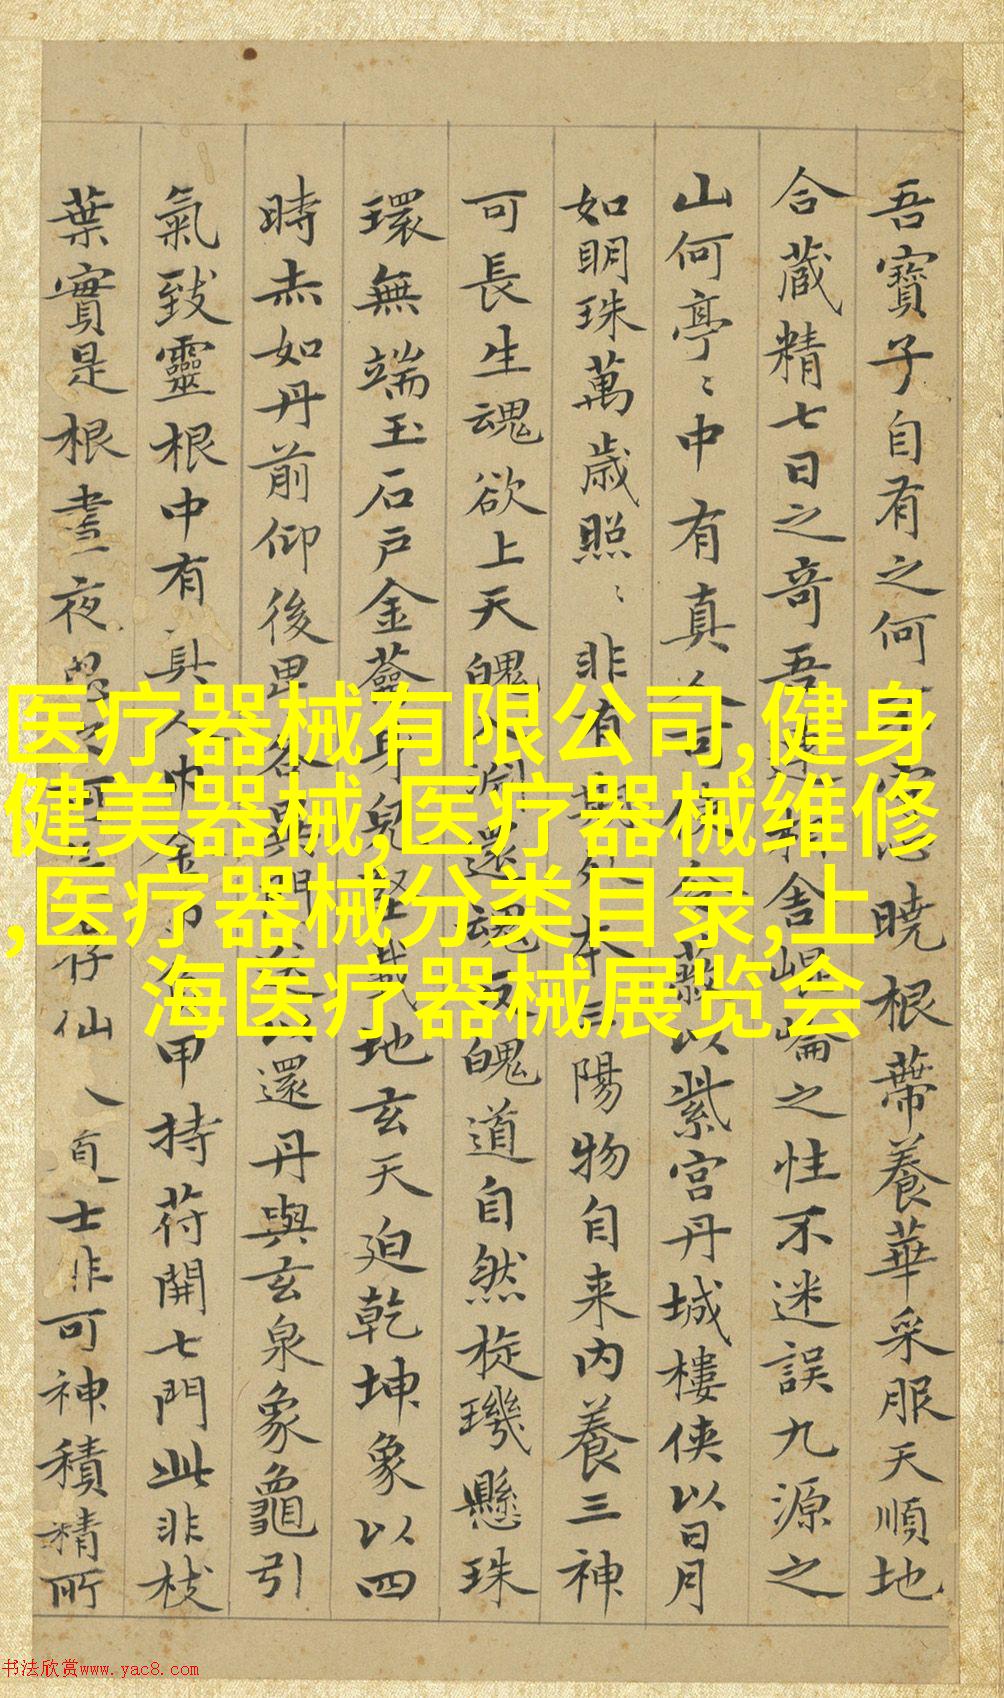 吾寶子自有之何曉根蔕養華采服天順地
合藏精七日之奇吾舍崐崘之性不迷誤九源之
山何亭〻中有真以紫宮丹城樓俠以日月
如明珠萬歲照〻非有本三陽物自来內養三神
可長生魂欲上天魄還魂反魄道自然旋璣懸珠
環無端玉石戶金身堅載地玄天迫乾坤象以四
時赤如丹前仰後卑各異門還丹與玄泉象龜引
氣致靈根中有真人巾金甲持苻開七門此非枝
葉實是根晝夜仙人道士非可神積精所
医疗器械有限公司,健身
健美器械,医疗器械维修
,医疗器械分类目录,上
海医疗器械展览会
书法欣赏www.yac8.com